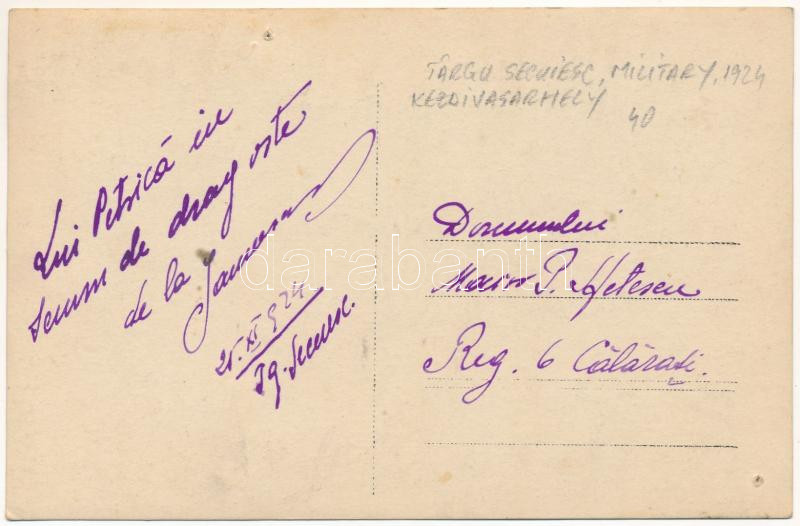 Lui Petrică in
semn de dragoste
de la
25.XI.924
Tg. Secuesc.
TÂRGU SECUIESC, MILITARY, 1924
KEZDIVASARHELY
40
Domnului
Maior P.
Reg. 6 Călărași.
darabanth.com